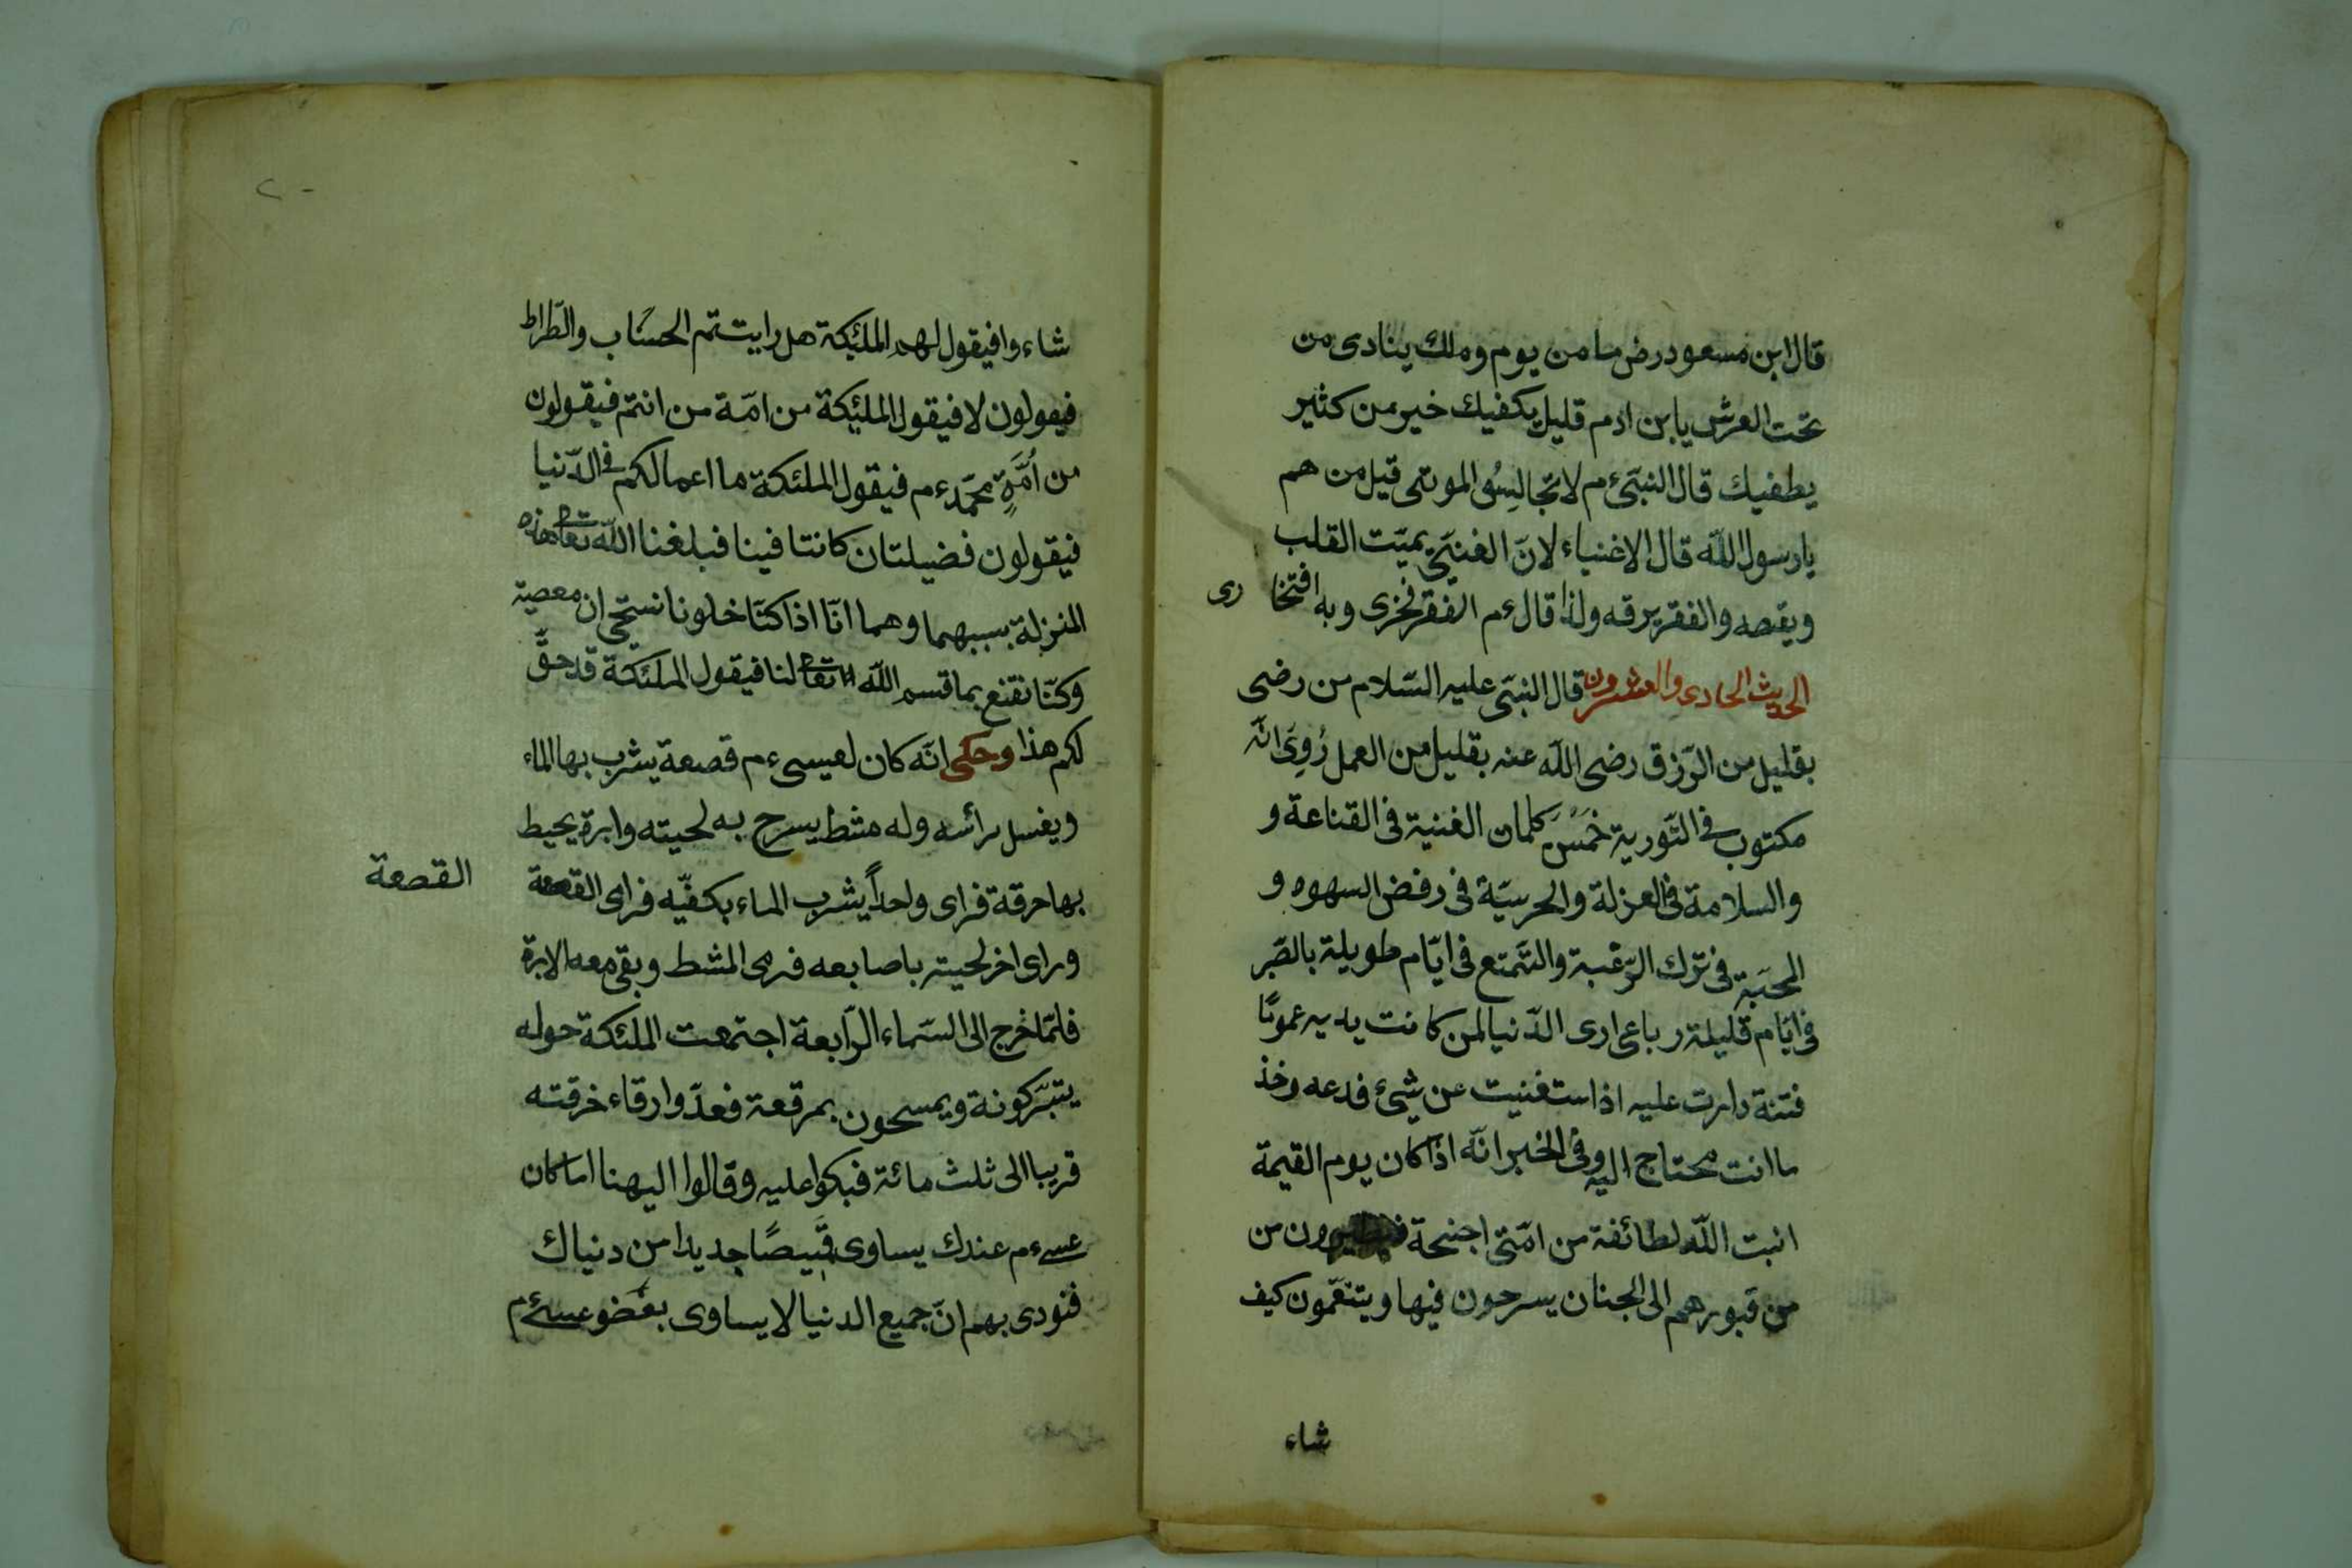 قال ابن مسعود رض ما من يوم وملك ينادى من
تحت العرش يا بن ادم قليل يكفيك خير من كثير
يطفيك قال النبىّ ءم لا تجالِسُوا الموتى قيل من هم
يا رسول اللّه قال الاغنياء لانّ الغنىّ يميّت القلب
ويقصه والفقر يرقه ولذا قال ءم الفقر فخرى وبه افتخا رى
الحديث الحادى والعشرون قال النبىّ عليه السّلام من رضى
بقليل من الرّزق رضى اللّه عنه بقليل من العمل رُوِىَ انّه
مكتوب فى التّورية خَمْسُ كلمان الغنية فى القناعة و
والسلامة فى العزلة والحرسيّة فى رفض السهوه و
المحبّة فى ترك الرّغبة والتّمتع فى ايّام طويلة بالصّبر
فى ايّام قليلة رباعى ارى الدّنيا لمن كانت يديه عمومًا
فتنة دارت عليه اذا ستغنيت عن شيئ فدعه وخذ
ما انت محتاج اليه وفى الخبر انّه اذا كان يوم القيمة
انبت اللّه لطائفة من امّتى اجنحة فيطيرون من
من قبورهم الى الجنان يسرحون فيها ويتنعّمون كيف
شاء
شاءوا فيقول لهم الملئكة هل رايت تم الحسَاب والصّراط
فيقولون لا فيقول الملئكة من امّة من انتم فيقولون
من اُمَّةِ محمّد ءم فيقول الملئكة ما اعمالكم فى الدّنيا
فيقولون فضيلتان كانتا فينا فبلغنا اللّه تعا هذه
المنزلة بسببهما وهما انّا اذا كنّا خلونا نستحى ان معصية
وكنّا نقنع بما قسم اللّه تعا لنا فيقول الملئكة قد حقّ
لكم هذا وحكى انّه كان لعيسى ءم قصعة يشرب بها الماء
ويغسل رأسه وله مشط يسرح به لحيته وابرة يحيط
بها حرقة فراى واحداً يشرب الماء بكفيّه فرمى القصعة
القصعة
وراى اخر لحيته باصابعه فرمى المشط وبقى معه الابرة
فلمّا خرج الى السّماء الرّابعة اجتمعت الملئكة حوله
يتبرّكونة ويمسحون بمرقعة فعدّوا رقاء خرقته
قريبا الى ثلث مائة فبكوا عليه وقالوا اليهنا اما كان
عسى ءم عندك يساوى قَميصًا جديدا من دنياك
فنودى بهم انّ جميع الدنيا لا يساوى بعَضو عسى ءم